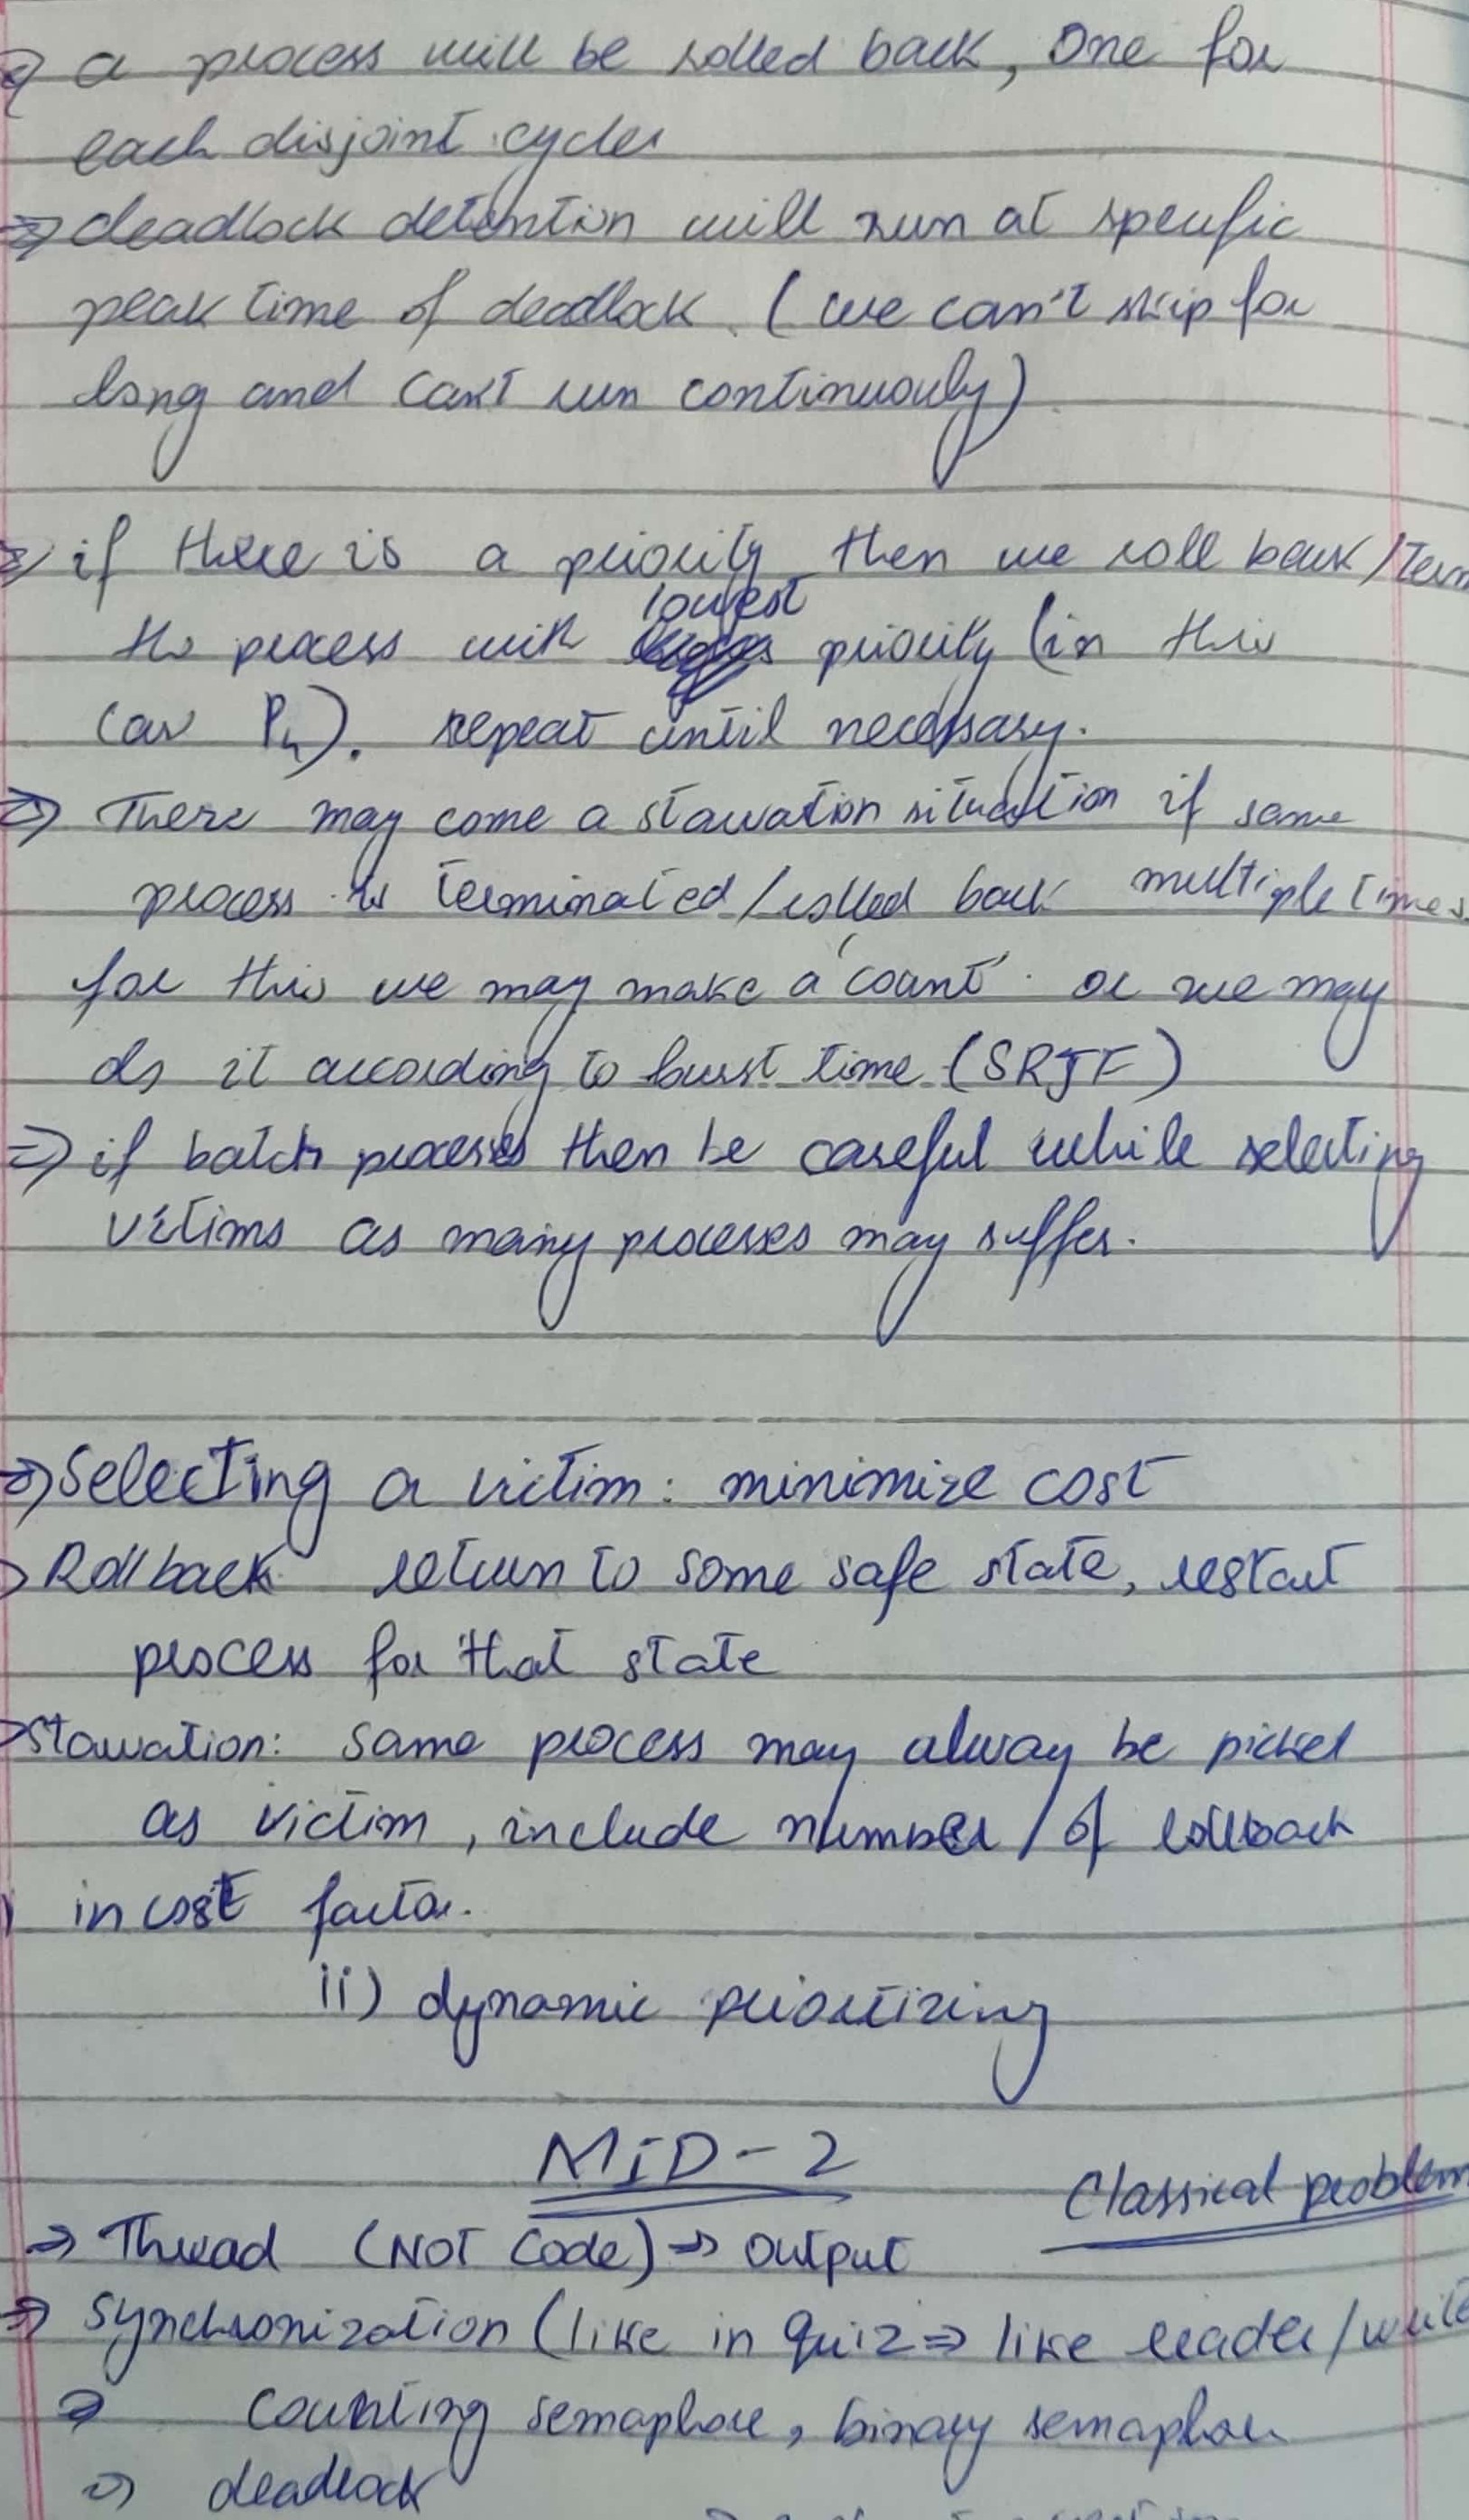 ⇒ a process will be rolled back, one for
each disjoint cycles
⇒ deadlock detention will run at specific
peak time of deadlock. (we can't skip for
long and can't run continuouly)
⇒ if there is a priority then we roll back/Term
the process with lowest priority (in this
case P4). repeat until necessary.
⇒ There may come a starvation situation if same
process is terminated/rolled back multiple times.
for this we may make a 'count' or we may
do it according to burst time (SRJF)
⇒ if batch processes then be careful while selecting
victims as many processes may suffer.
⇒ Selecting a victim: minimize cost
⇒ Rollback return to some safe state, restart
process for that state
⇒ Starvation: same process may alway be picked
as victim, include number of rollback
in cost factor.
ii) dynamic prioritizing
MID-2
Classical problem
⇒ Thread (NOT Code) → output
⇒ Synchronization (like in Quiz ⇒ like reader/write
⇒ counting semaphore, binary semaphore
⇒ deadlock